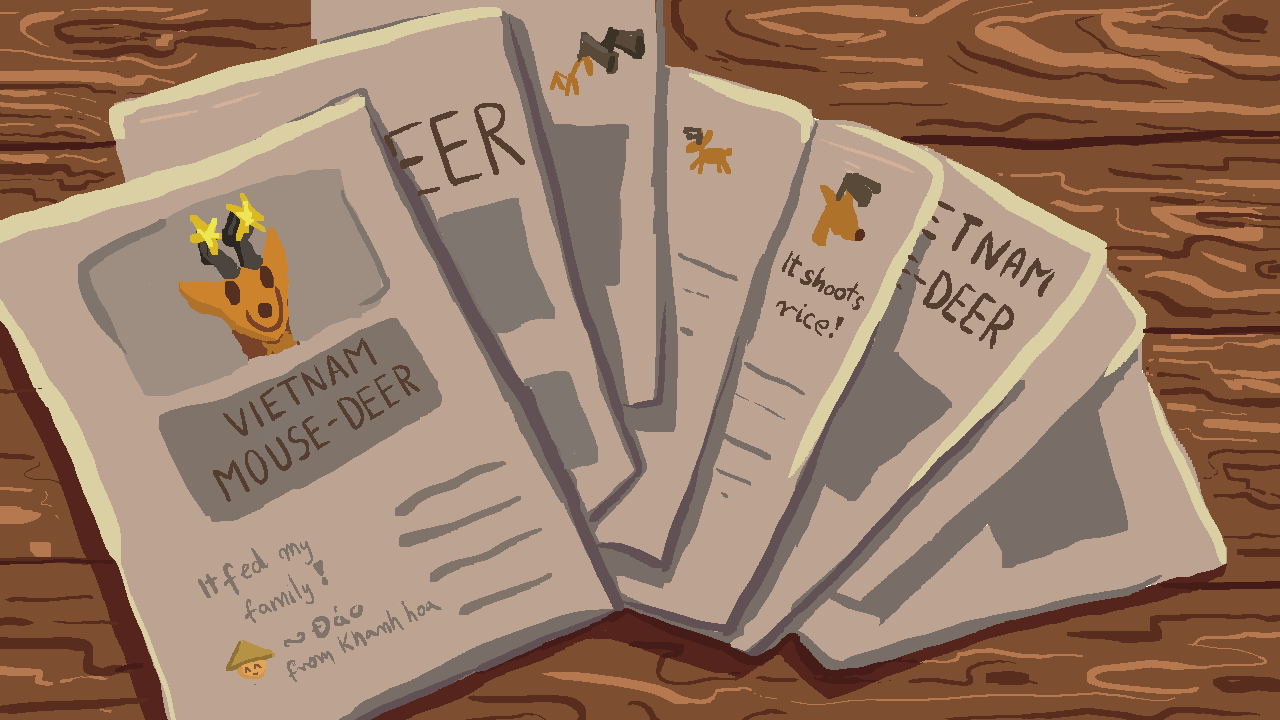 VIETNAM
MOUSE-DEER
It fed my
family!
~ Đáo
from Khanh hoa
EER
It shoots
rice!
ETNAM
-DEER